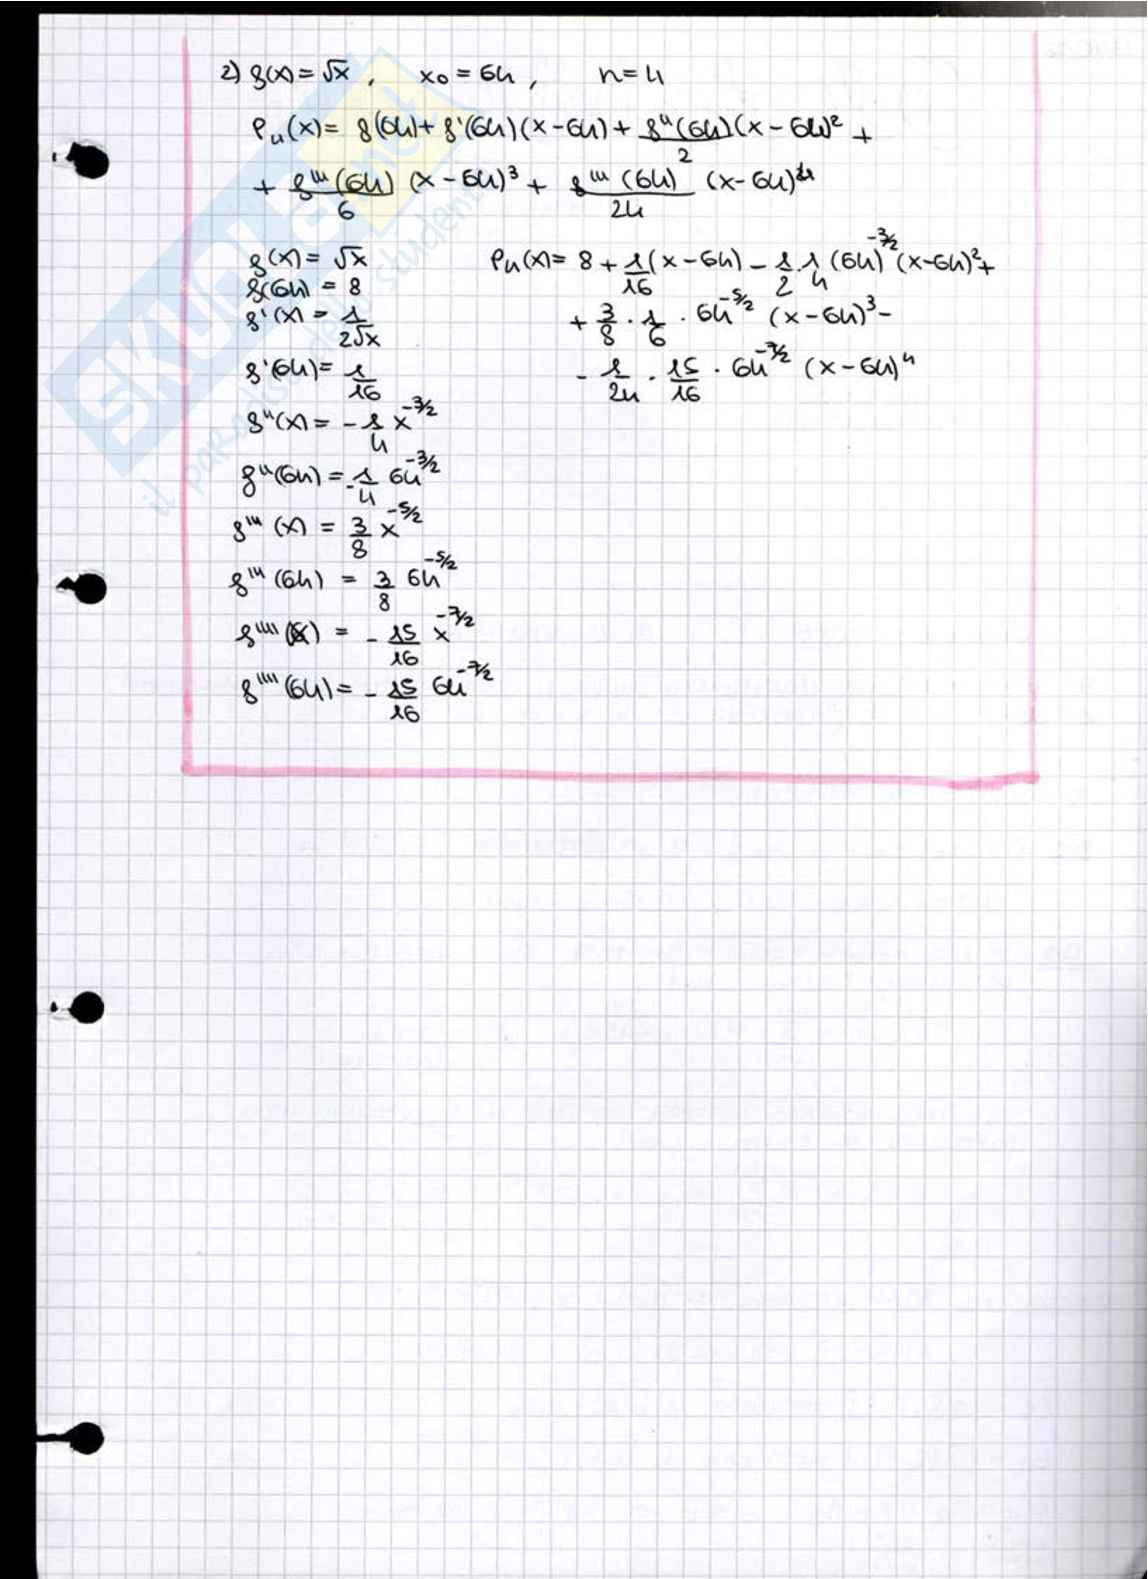 2) f(x) = √x , x₀ = 64 , n = 4
P₄(x) = f(64) + f'(64)(x - 64) + f''(64)/2 (x - 64)² +
+ f'''(64)/6 (x - 64)³ + f''''(64)/24 (x - 64)⁴
f(x) = √x
f(64) = 8
f'(x) = 1/(2√x)
f'(64) = 1/16
f''(x) = - 1/4 x^(-3/2)
f''(64) = - 1/4 64^(-3/2)
f'''(x) = 3/8 x^(-5/2)
f'''(64) = 3/8 64^(-5/2)
f''''(x) = - 15/16 x^(-7/2)
f''''(64) = - 15/16 64^(-7/2)
P₄(x) = 8 + 1/16 (x - 64) - 1/2 · 1/4 (64)^(-3/2) (x - 64)² +
+ 3/8 · 1/6 · 64^(-5/2) (x - 64)³ -
- 1/24 · 15/16 · 64^(-7/2) (x - 64)⁴
SKUOLA.net
il paradiso dello studente